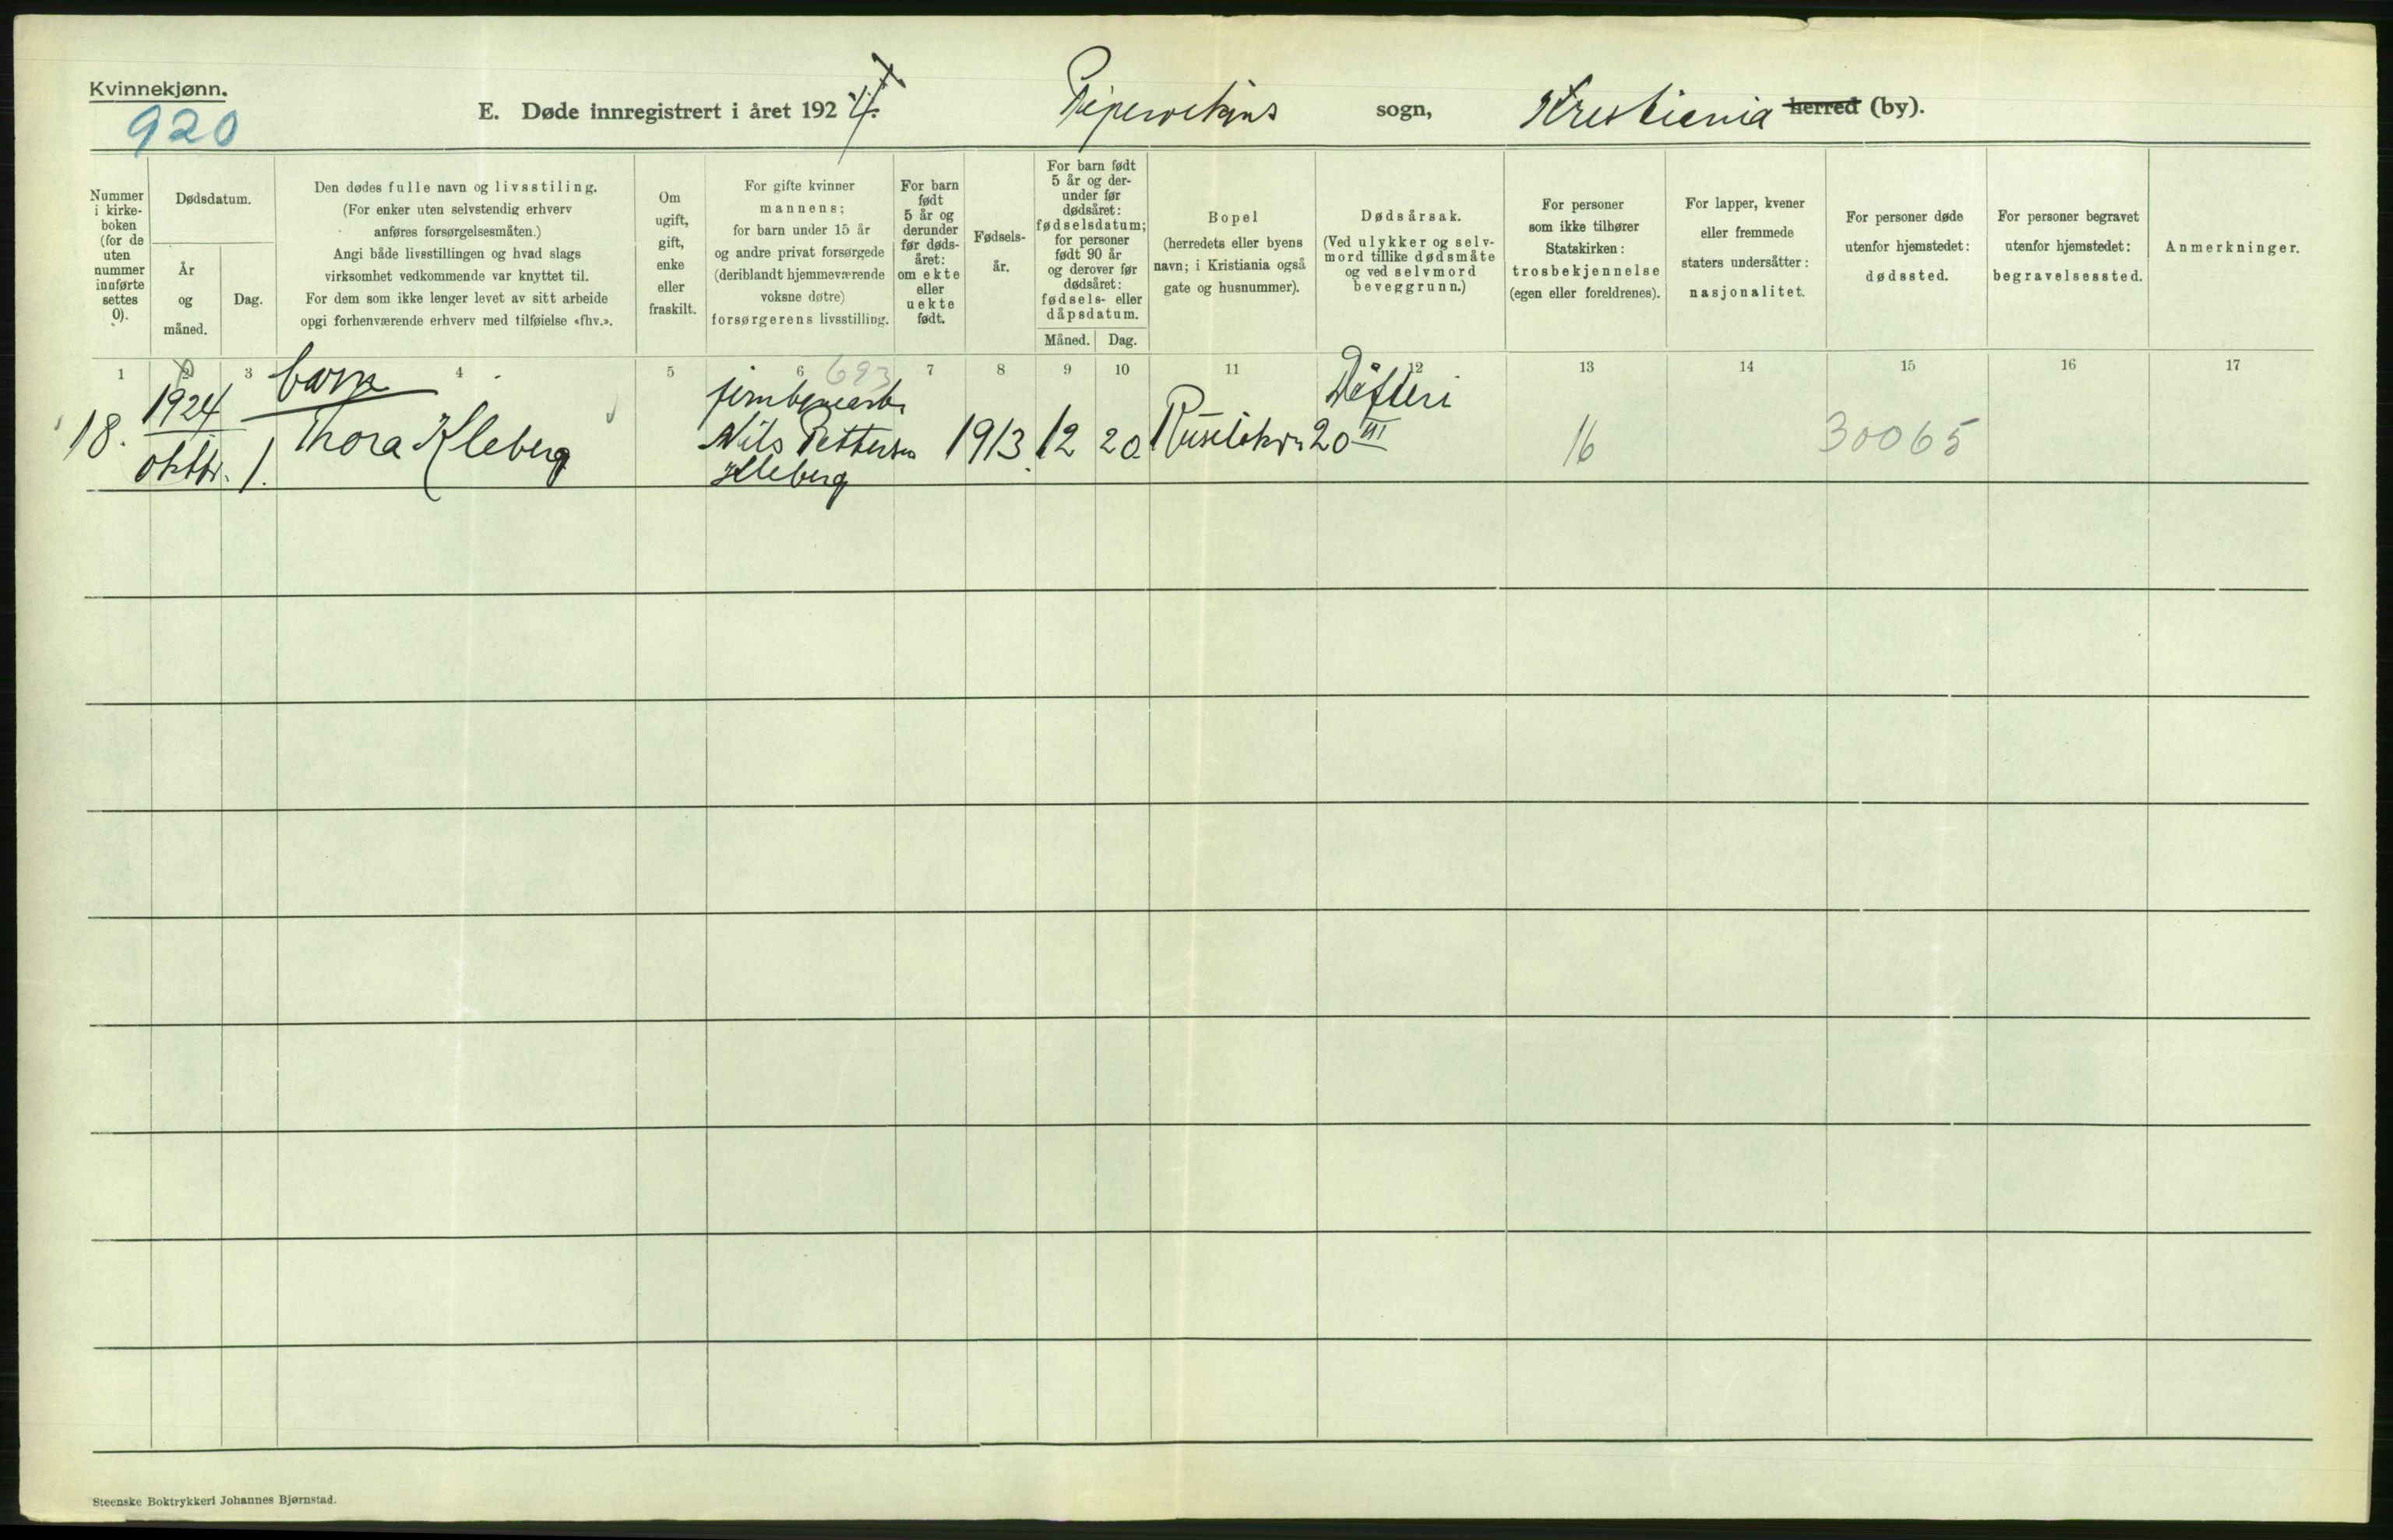 Kvinnekjønn.
920
E. Døde innregistrert i året 1924. Pipervikens sogn, Kristiania herred (by).
Nummer
i kirke-
boken
(for de
uten
nummer
innførte
settes
0).
Dødsdatum.
År
og
måned.
Dag.
Den dødes fulle navn og livsstiling.
(For enker uten selvstendig erhverv
anføres forsørgelsesmåten.)
Angi både livsstillingen og hvad slags
virksomhet vedkommende var knyttet til.
For dem som ikke lenger levet av sitt arbeide
opgi forhenværende erhverv med tilføielse «fhv.».
Om
ugift,
gift,
enke
eller
fraskilt.
For gifte kvinner
mannens;
for barn under 15 år
og andre privat forsørgede
(deriblandt hjemmeværende
voksne døtre)
forsørgerens livsstilling.
For barn
født
5 år og
derunder
før døds-
året:
om ekte
eller
uekte
født.
Fødsels-
år.
For barn født
5 år og der-
under før
dødsåret:
fødselsdatum;
for personer
født 90 år
og derover før
dødsåret:
fødsels- eller
dåpsdatum.
Måned.
Dag.
Bopel
(herredets eller byens
navn; i Kristiania også
gate og husnummer).
Dødsårsak.
(Ved ulykker og selv-
mord tillike dødsmåte
og ved selvmord
beveggrunn.)
For personer
som ikke tilhører
Statskirken:
trosbekjennelse
(egen eller foreldrenes).
For lapper, kvener
eller fremmede
staters undersåtter:
nasjonalitet.
For personer døde
utenfor hjemstedet:
dødssted.
For personer begravet
utenfor hjemstedet:
begravelsessted.
Anmerkninger.
1 2 3 4 5 6 7 8 9 10 11 12 13 14 15 16 17
18.
1924
oktbr.
1.
barn
Thora Kleberg
693
Nils Pettersen
Kleberg
1913.
12
20
20 III
Difteri
16
30065
Steenske Boktrykkeri Johannes Bjørnstad.